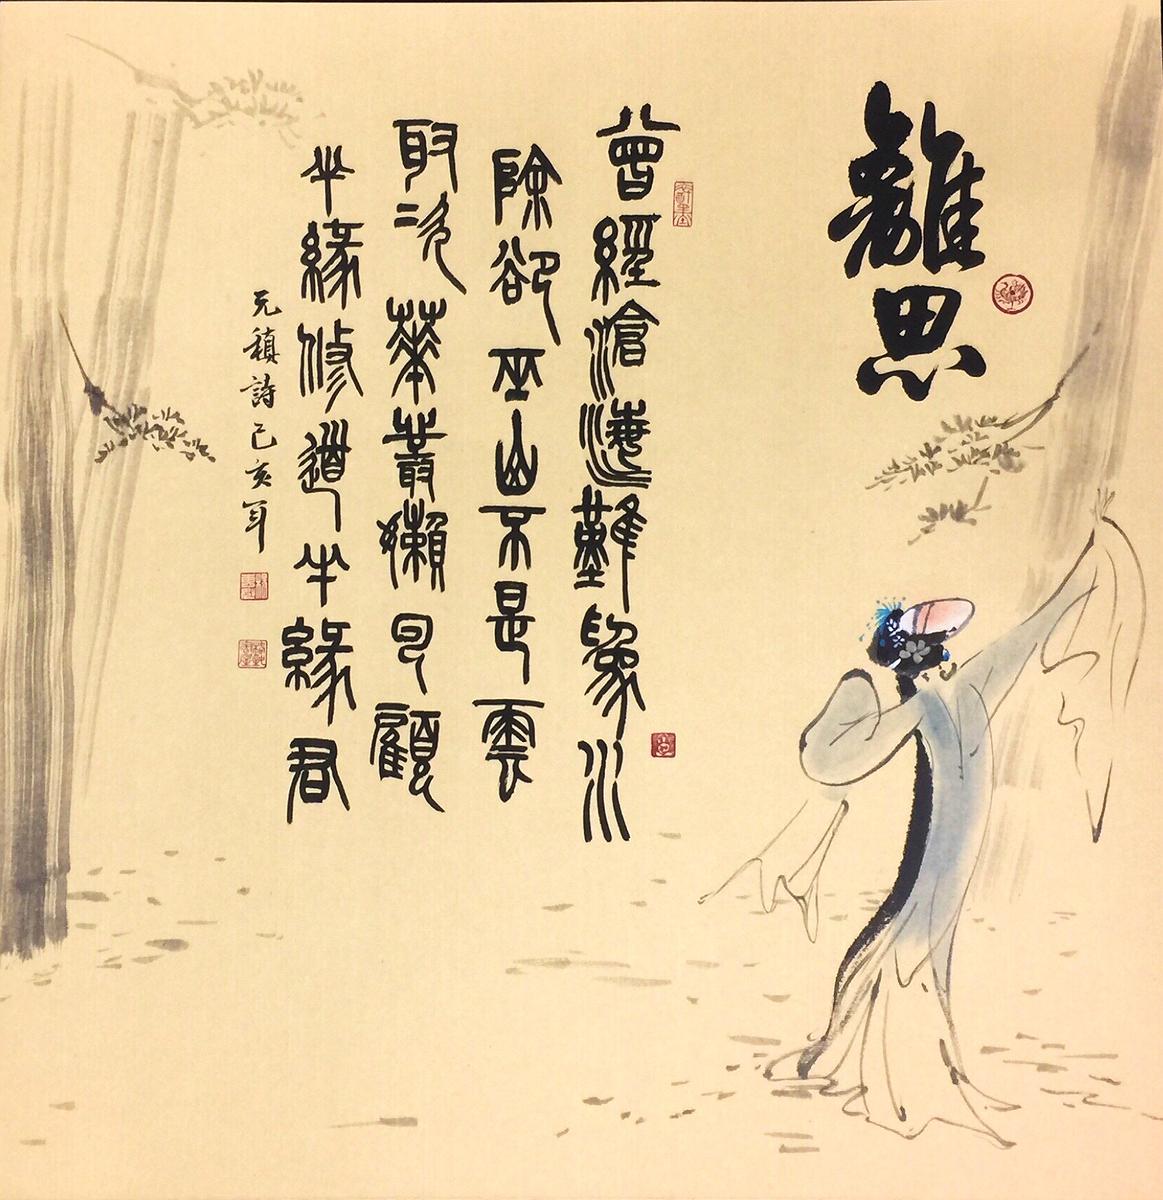 離思
曾經滄海難爲水
除卻巫山不是雲
取次華叢嬾回顧
半緣修道半緣君
元稹詩己亥年